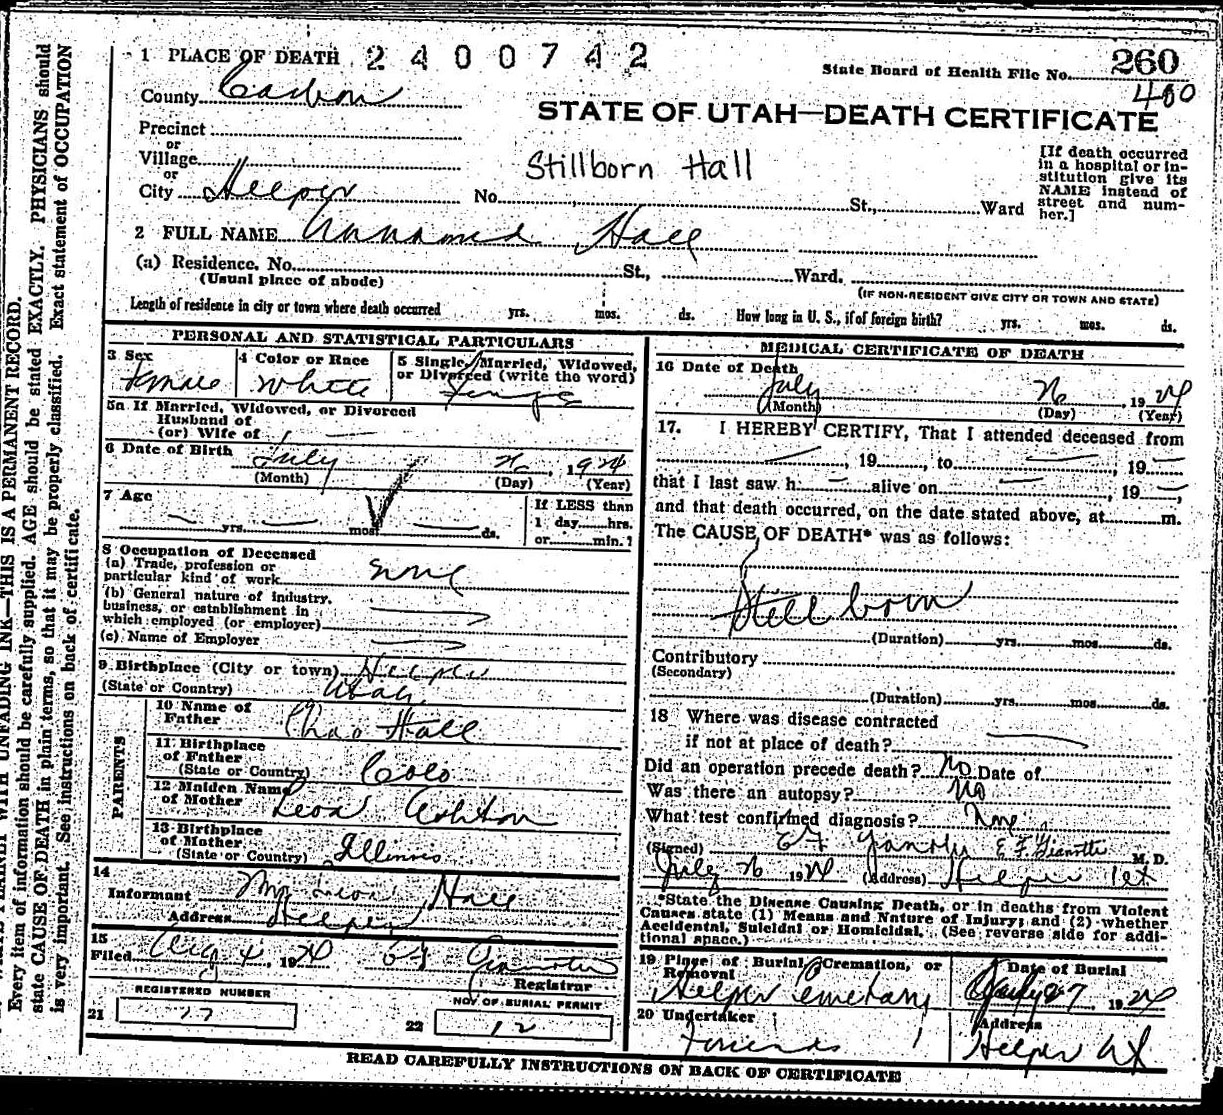 1 PLACE OF DEATH 2400742
State Board of Health File No. 260
400
County Carbon
STATE OF UTAH—DEATH CERTIFICATE
Precinct
or
Village
or
City Helper
Stillborn Hall
No. St., Ward
[If death occurred
in a hospital or in-
stitution give its
NAME instead of
street and num-
ber.]
2 FULL NAME Unnamed Hall
(a) Residence. No. St., Ward.
(Usual place of abode)
(IF NON-RESIDENT GIVE CITY OR TOWN AND STATE)
Length of residence in city or town where death occurred yrs. mos. ds. How long in U. S., if of foreign birth? yrs. mos. ds.
PERSONAL AND STATISTICAL PARTICULARS
3 Sex
Female
4 Color or Race
White
5 Single, Married, Widowed,
or Divorced (write the word)
Single
5a If Married, Widowed, or Divorced
Husband of
(or) Wife of
6 Date of Birth July 26, 1924
(Month) (Day) (Year)
7 Age
yrs. mos. ds.
If LESS than
1 day hrs.
or min.?
8 Occupation of Deceased
(a) Trade, profession or
particular kind of work none
(b) General nature of industry,
business, or establishment in
which employed (or employer)
(c) Name of Employer
9 Birthplace (City or town) Helper
(State or Country) Utah
PARENTS
10 Name of
Father Chas Hall
11 Birthplace
of Father
(State or Country) Colo
12 Maiden Name
of Mother Leona Ashton
13 Birthplace
of Mother
(State or Country) Illinois
14
Informant Mrs Leona Hall
Address Helper
15
Filed Aug 4, 1924 E F Gianotti
Registrar
REGISTERED NUMBER
21 17
NO. OF BURIAL PERMIT
22 12
MEDICAL CERTIFICATE OF DEATH
16 Date of Death
July 26, 1924
(Month) (Day) (Year)
17. I HEREBY CERTIFY, That I attended deceased from
, 19 , to , 19
that I last saw h alive on , 19 ,
and that death occurred, on the date stated above, at m.
The CAUSE OF DEATH* was as follows:
Stillborn
(Duration) yrs. mos. ds.
Contributory
(Secondary)
(Duration) yrs. mos. ds.
18 Where was disease contracted
if not at place of death?
Did an operation precede death? No Date of
Was there an autopsy? No
What test confirmed diagnosis? None
(Signed) E F Gianotti E. F. Gianotti M. D.
July 26 1924 (Address) Helper Ut
*State the Disease Causing Death, or in deaths from Violent
Causes state (1) Means and Nature of Injury; and (2) whether
Accidental, Suicidal or Homicidal. (See reverse side for addi-
tional space.)
19 Place of Burial, Cremation, or
Removal
Helper Cemetary
Date of Burial
July 27, 1924
20 Undertaker
Friends
Address
Helper Ut
READ CAREFULLY INSTRUCTIONS ON BACK OF CERTIFICATE
WITH UNFADING INK—THIS IS A PERMANENT RECORD.
Every item of information should be carefully supplied. AGE should be stated EXACTLY. PHYSICIANS should
state CAUSE OF DEATH in plain terms, so that it may be properly classified. Exact statement of OCCUPATION
is very important. See instructions on back of certificate.